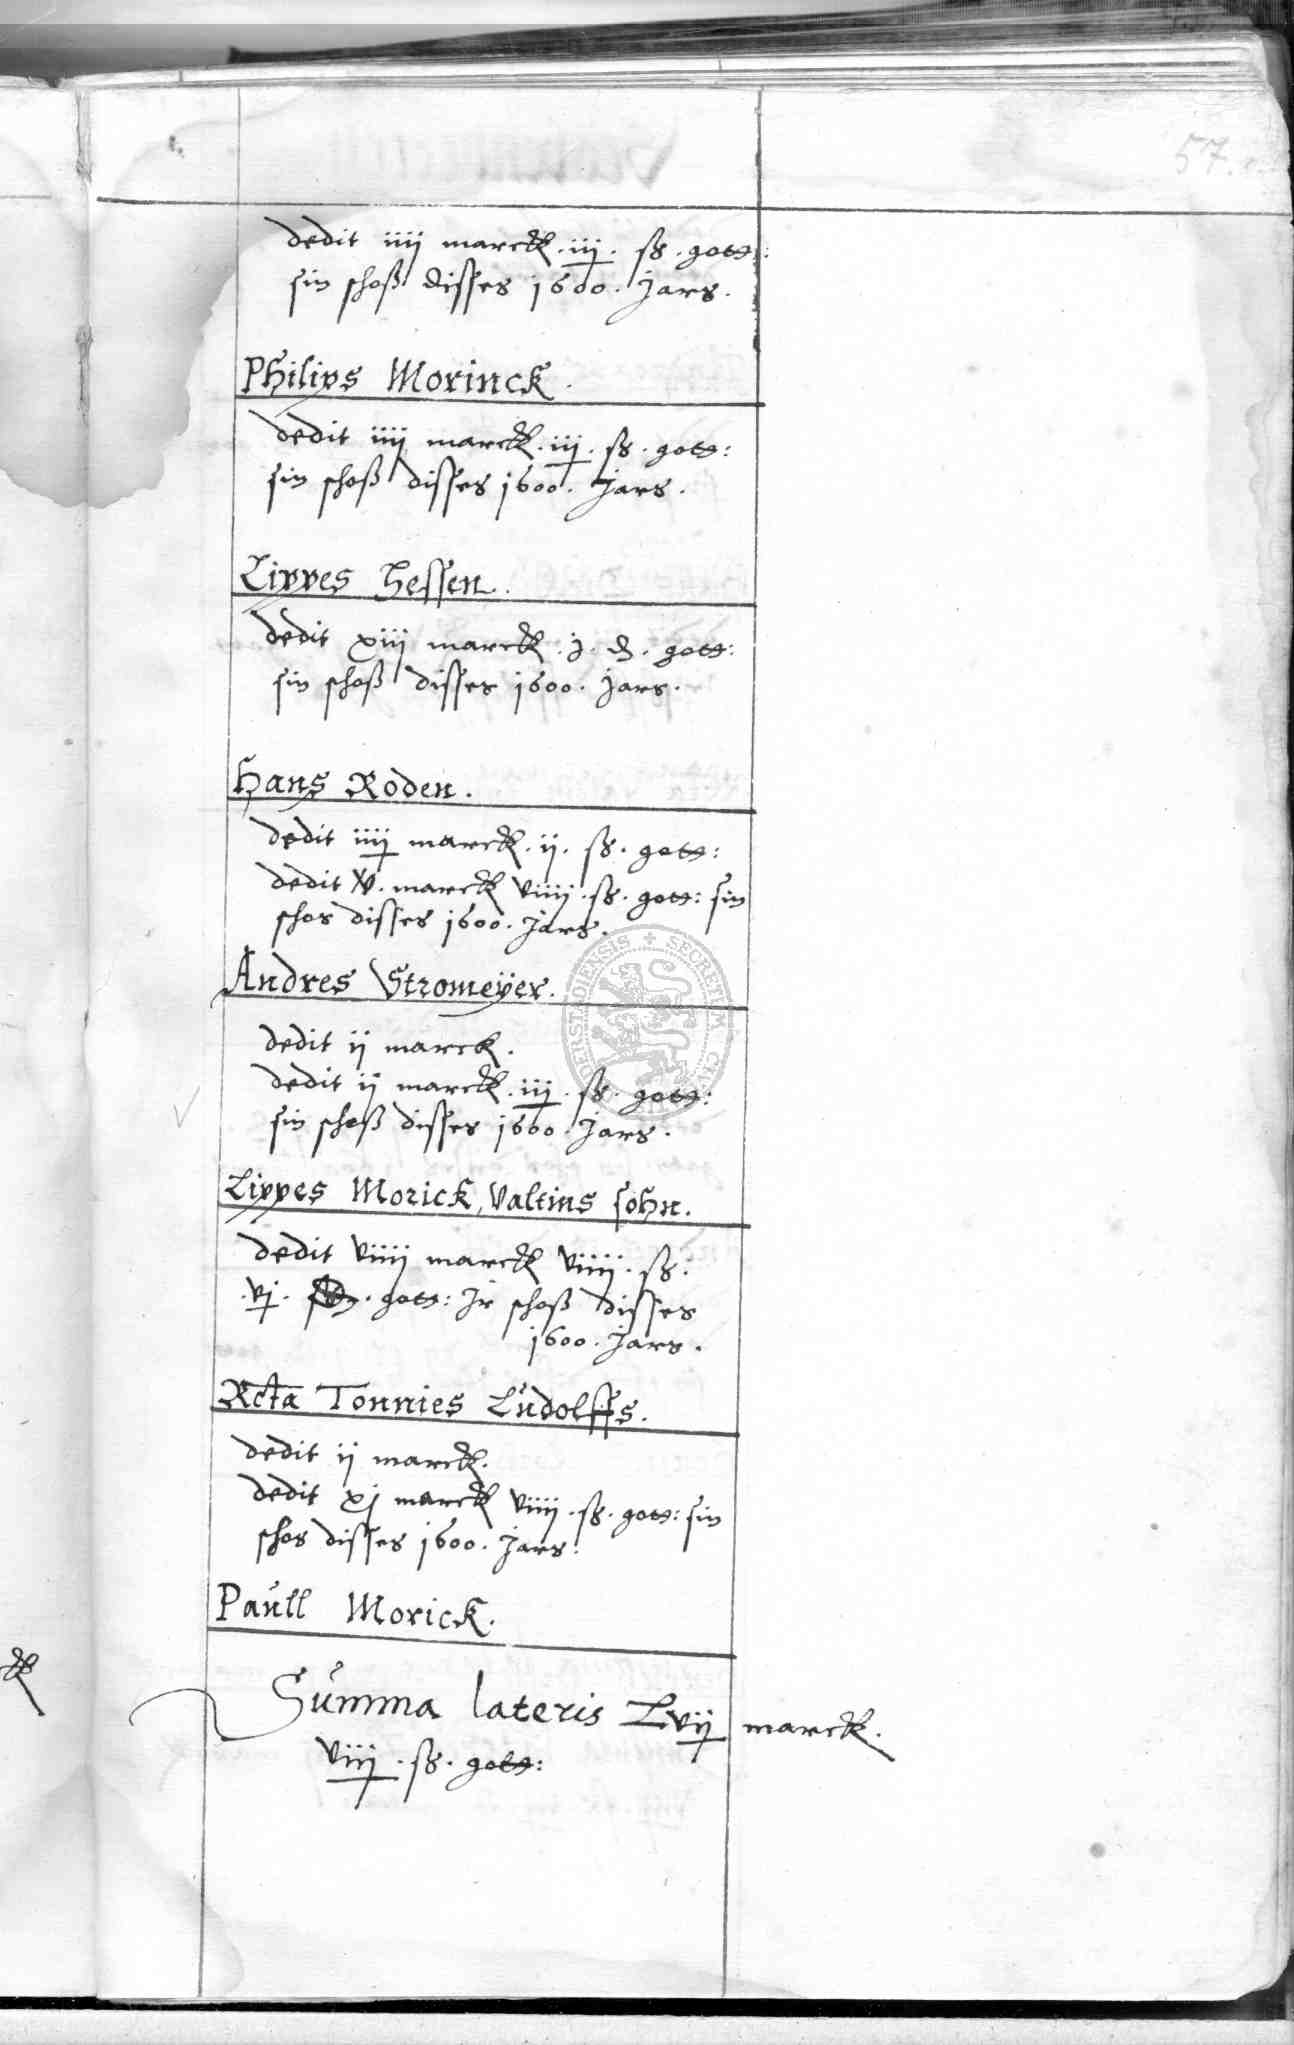 57.
dedit iiij marck . iij . ß . gott:
sin schoß disses 1600 . Jars .
Philips Morinck .
dedit iiij marck . iij . ß . gott:
sin schoß disses 1600 . Jars .
Lippes Hessen .
dedit xiij marck . j . d . gott:
sin schoß disses 1600 . Jars .
Hans Roden .
dedit iiij marck . ij . ß . gott:
dedit v . marck viiij . ß . gott: sin
schos disses 1600 . Jars .
Andres Stromeÿer .
dedit ij marck .
dedit ij marck . iij . ß . gott:
sin schoß disses 1600 . Jars .
Lippes Morick, Valtins sohn .
dedit viiij marck viiij . ß .
. vj . gott: Jr schoß disses
1600 . Jars .
Rcta Tonnies Ludolffs .
dedit ij marck .
dedit xj marck viiij . ß . gott: sin
schos disses 1600 . Jars .
Paull Morick .
Summa lateris Lvij marck .
viij . ß . gott:
SECRETUM